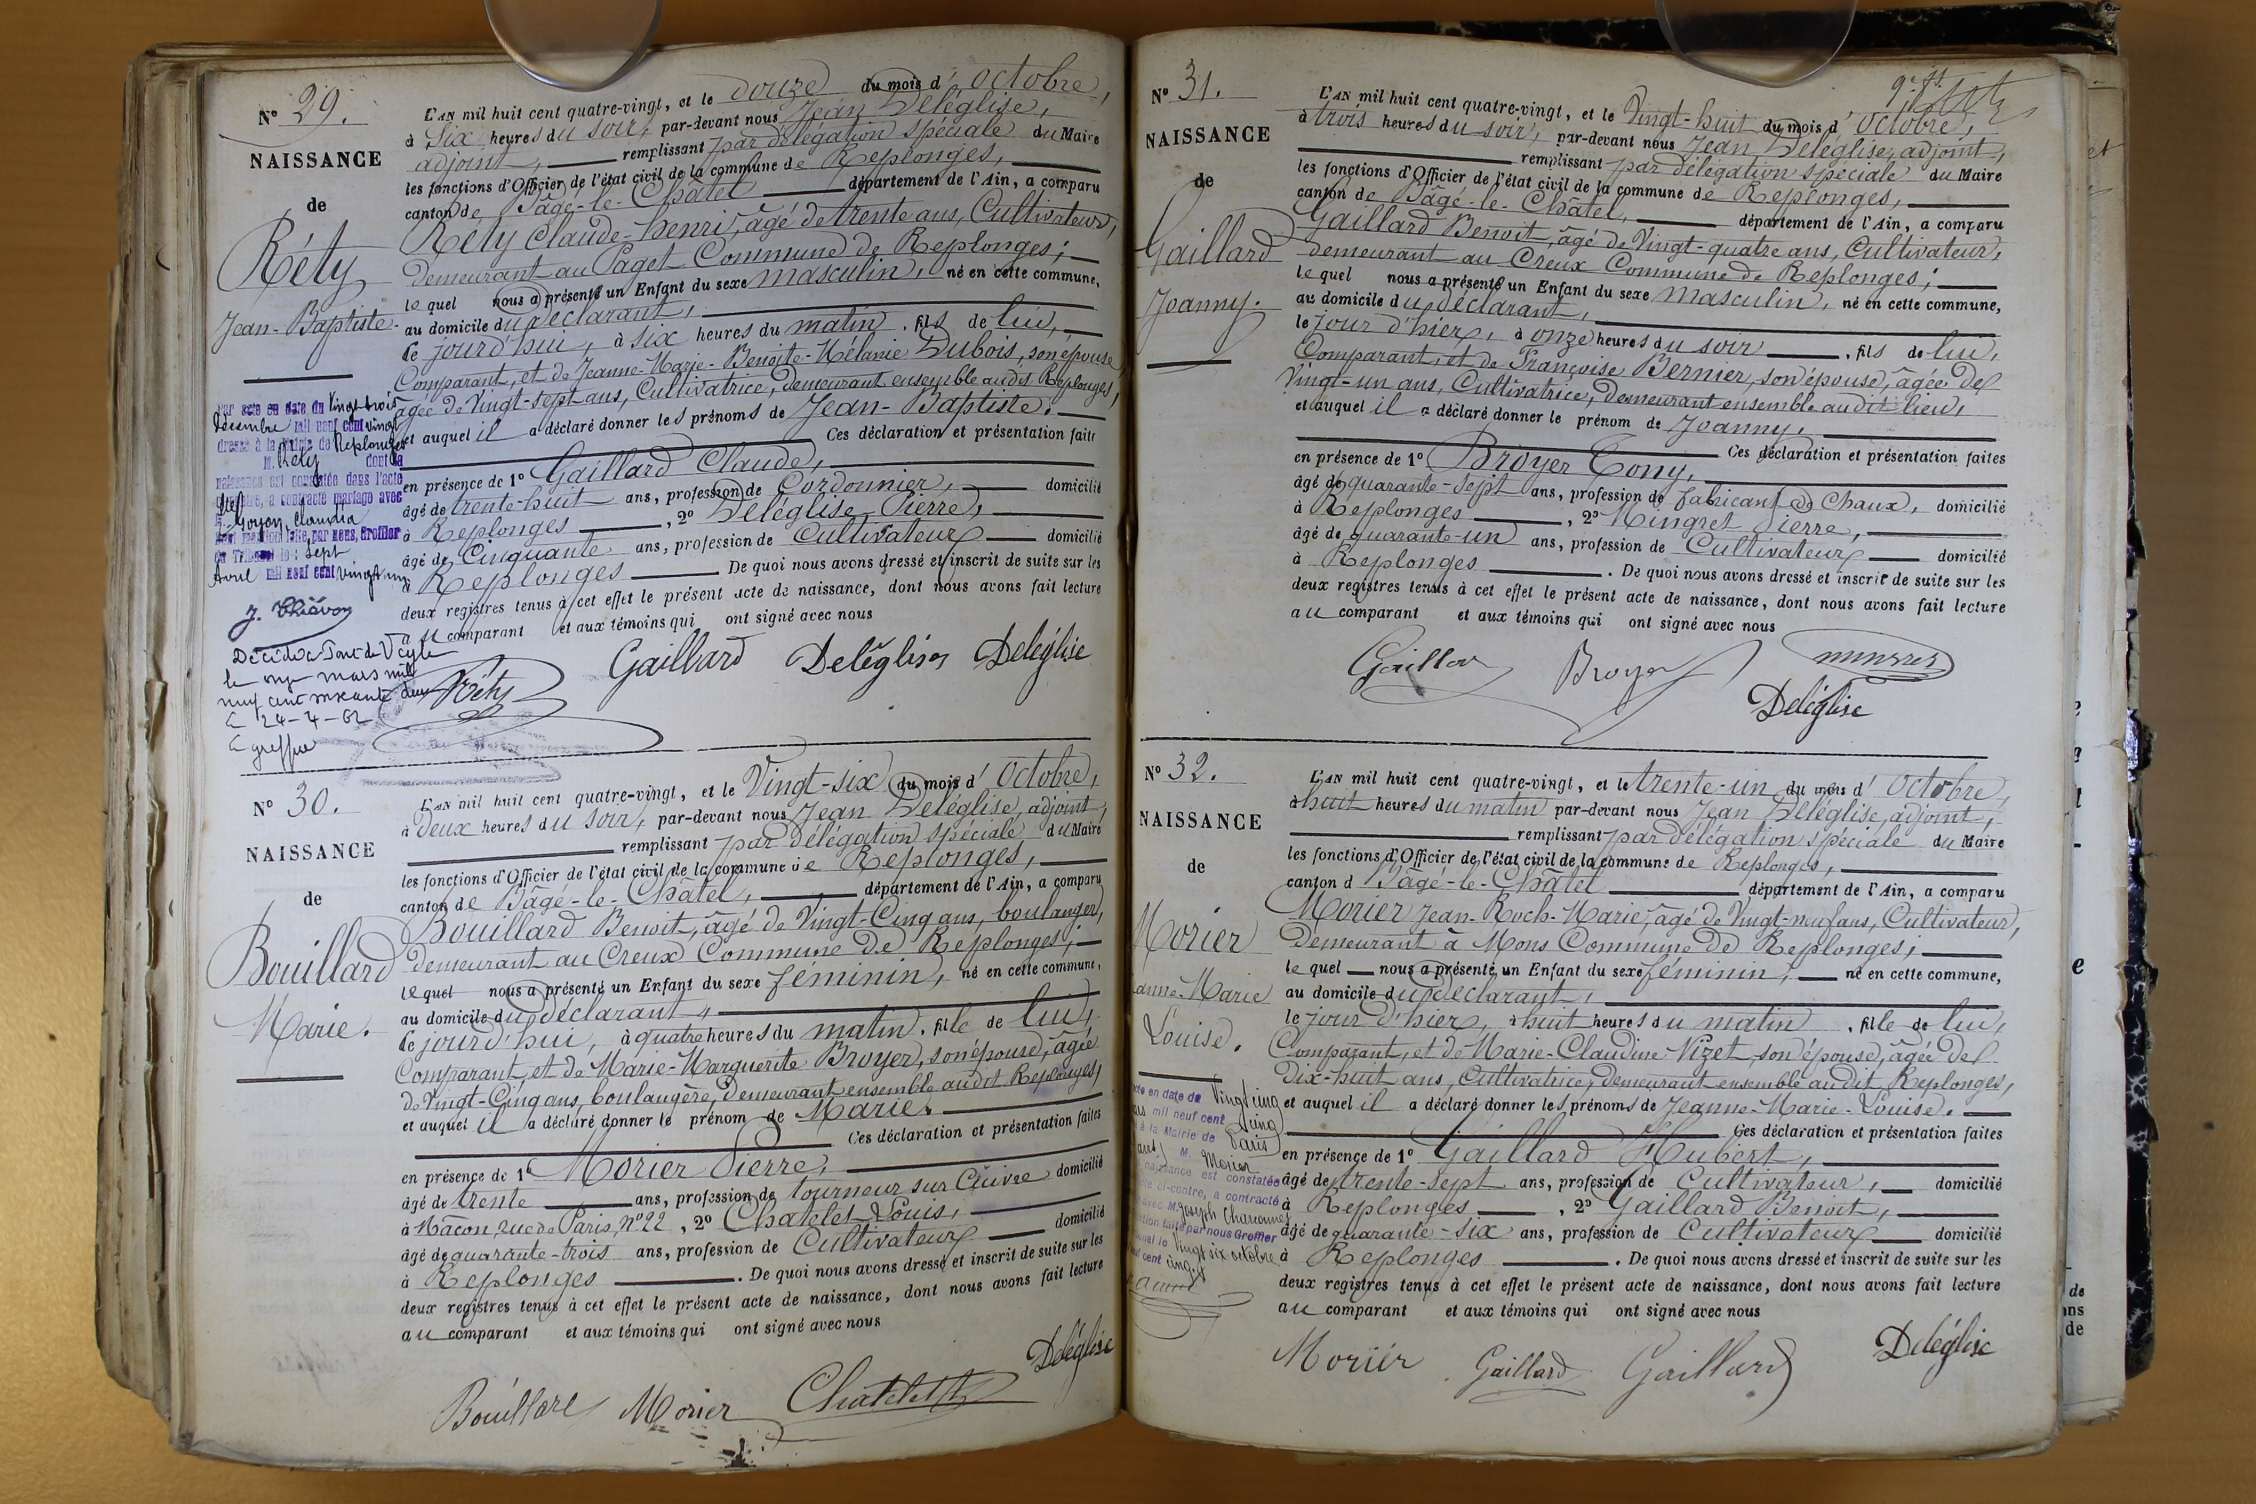 N° 29.
NAISSANCE
de
Réty
Jean-Baptiste.
Par acte en date du vingt trois
décembre mil neuf cent vingt
dressé à la Mairie de Replonges
M. Réty dont la
naissance est constatée dans l'acte
ci-contre, a contracté mariage avec
Goyon Claudia
mention faite par nous, Greffier
du Tribunal le sept
Avril mil neuf cent vingt un
Décédé à Pont de Veyle
le onze mars mil
neuf cent soixante deux
24-4-62
Le greffier
L'AN mil huit cent quatre-vingt, et le douze du mois d'octobre,
à Six heures du soir, par-devant nous Jean Deléglise,
adjoint, remplissant par délégation spéciale du Maire
les fonctions d'Officier de l'état civil de la commune de Replonges,
canton de Bâgé-le-Châtel département de l'Ain, a comparu
Réty Claude-henri, âgé de trente ans, Cultivateur,
demeurant au Paget Commune de Replonges;
le quel nous a présenté un Enfant du sexe masculin, né en cette commune,
au domicile du déclarant,
le jourd'hui, à six heures du matin, fils de lui,
Comparant, et de Jeanne-Marie-Benoite-Mélanie Dubois, son épouse,
âgée de Vingt-sept ans, Cultivatrice, demeurant ensemble audit Replonges,
et auquel il a déclaré donner les prénoms de Jean-Baptiste.
Ces déclaration et présentation faites
en présence de 1° Gaillard Claude,
âgé de trente-huit ans, profession de Cordonnier, domicilié
à Replonges, 2° Deléglise Pierre,
âgé de Cinquante ans, profession de Cultivateur domicilié
à Replonges. De quoi nous avons dressé et inscrit de suite sur les
deux registres tenus à cet effet le présent acte de naissance, dont nous avons fait lecture
au comparant et aux témoins qui ont signé avec nous
Réty Gaillard Deléglise Deléglise
N° 30.
NAISSANCE
de
Bouillard
Marie.
L'AN mil huit cent quatre-vingt, et le Vingt-six du mois d'octobre,
à deux heures du soir, par-devant nous Jean Deléglise, adjoint,
remplissant par délégation spéciale du Maire
les fonctions d'Officier de l'état civil de la commune de Replonges,
canton de Bâgé-le-Châtel, département de l'Ain, a comparu
Bouillard Benoit, âgé de Vingt-Cinq ans, boulanger,
demeurant au Creux Commune de Replonges;
le quel nous a présenté un Enfant du sexe féminin, né en cette commune,
au domicile du déclarant,
le jourd'hui, à quatre heures du matin, fille de lui,
Comparant, et de Marie-Marguerite Broyer, son épouse, âgée
de Vingt-Cinq ans, boulangère, demeurant ensemble audit Replonges,
et auquel il a déclaré donner le prénom de Marie.
Ces déclaration et présentation faites
en présence de 1° Morier Pierre,
âgé de trente ans, profession de tourneur sur Cuivre domicilié
à Mâcon, rue de Paris, N° 22, 2° Chatelet Louis,
âgé de quarante-trois ans, profession de Cultivateur domicilié
à Replonges. De quoi nous avons dressé et inscrit de suite sur les
deux registres tenus à cet effet le présent acte de naissance, dont nous avons fait lecture
au comparant et aux témoins qui ont signé avec nous
Deléglise
Bouillard Morier Chatelet
N° 31.
NAISSANCE
de
Gaillard
Joanny.
L'AN mil huit cent quatre-vingt, et le Vingt-huit du mois d'octobre,
à trois heures du soir, par-devant nous Jean Deléglise, adjoint,
remplissant par délégation spéciale du Maire
les fonctions d'Officier de l'état civil de la commune de Replonges,
canton de Bâgé-le-Châtel, département de l'Ain, a comparu
Gaillard Benoit, âgé de Vingt-quatre ans, Cultivateur,
demeurant au Creux Commune de Replonges;
le quel nous a présenté un Enfant du sexe masculin, né en cette commune,
au domicile du déclarant,
le jour d'hier, à onze heures du soir, fils de lui,
Comparant, et de Françoise Bernier, son épouse, âgée de
Vingt-un ans, Cultivatrice, demeurant ensemble audit lieu,
et auquel il a déclaré donner le prénom de Joanny.
Ces déclaration et présentation faites
en présence de 1° Broyer Tony,
âgé de quarante-sept ans, profession de fabricant de Chaux, domicilié
à Replonges, 2° Mingret Pierre,
âgé de quarante-un ans, profession de Cultivateur domicilié
à Replonges. De quoi nous avons dressé et inscrit de suite sur les
deux registres tenus à cet effet le présent acte de naissance, dont nous avons fait lecture
au comparant et aux témoins qui ont signé avec nous
Broyer
Deléglise
N° 32.
NAISSANCE
de
Morier
anne-Marie
Louise.
acte en date du Vingt cinq
mil neuf cent cinq
à la Mairie de Paris
M. Morier
naissance est constatée
ci-contre, a contracté
avec M. Joseph
faite par nous Greffier
le vingt six octobre
cent cinq
L'AN mil huit cent quatre-vingt, et le trente-un du mois d'octobre,
à huit heures du matin par-devant nous Jean Deléglise, adjoint,
remplissant par délégation spéciale du Maire
les fonctions d'Officier de l'état civil de la commune de Replonges,
canton d Bâgé-le-Châtel département de l'Ain, a comparu
Morier Jean-Roch-Marie, âgé de Vingt-neuf ans, Cultivateur,
demeurant à Mons Commune de Replonges;
le quel nous a présenté un Enfant du sexe féminin, né en cette commune,
au domicile du déclarant,
le jour d'hier, à huit heures du matin, fille de lui,
Comparant, et de Marie-Claudine Vizet, son épouse, âgée de
Dix-huit ans, Cultivatrice, demeurant ensemble audit Replonges,
et auquel il a déclaré donner les prénoms de Jeanne-Marie-Louise.
Ces déclaration et présentation faites
en présence de 1° Gaillard Hubert,
âgé de trente-sept ans, profession de Cultivateur, domicilié
à Replonges, 2° Gaillard Benoit,
âgé de quarante-six ans, profession de Cultivateur domicilié
à Replonges. De quoi nous avons dressé et inscrit de suite sur les
deux registres tenus à cet effet le présent acte de naissance, dont nous avons fait lecture
au comparant et aux témoins qui ont signé avec nous
Morier Gaillard Gaillard Deléglise